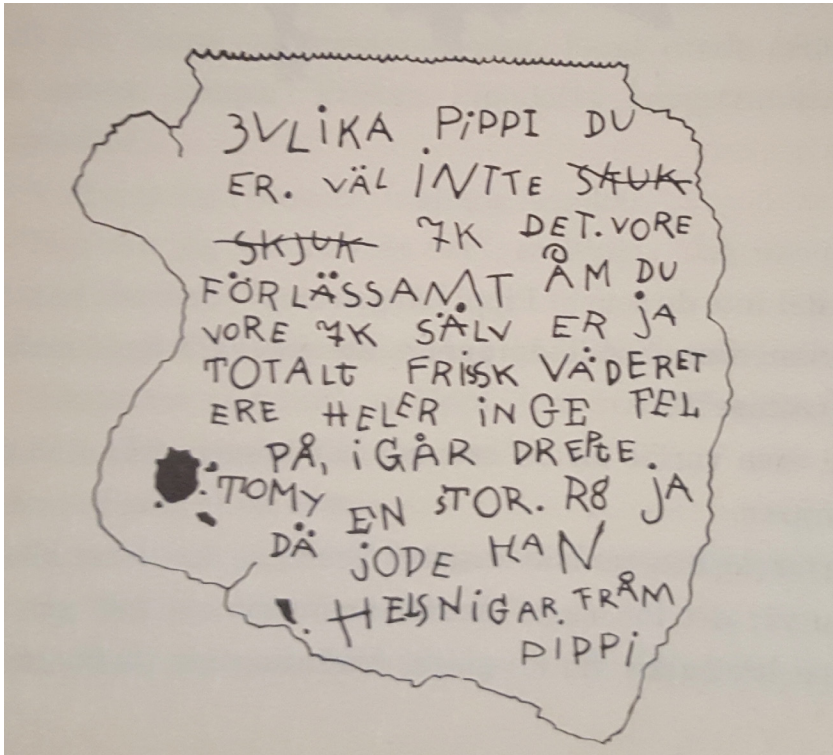 3VLiKA PiPPI DU
ER. VÄL iNTTE SKUK
SKJUK 7K DET. VORE
FÖRLÄSSAMT ÅM DU
VORE 7K SÄLV ER jA
TOTALt FRISSK VÄDERET
ERE HELER iNGE FEL
PÅ, iGÅR DREPtE.
TOMY EN STOR. R8 JA
DÄ jODE HAN
! HELSNiGAR. FRÅM
PIPPi